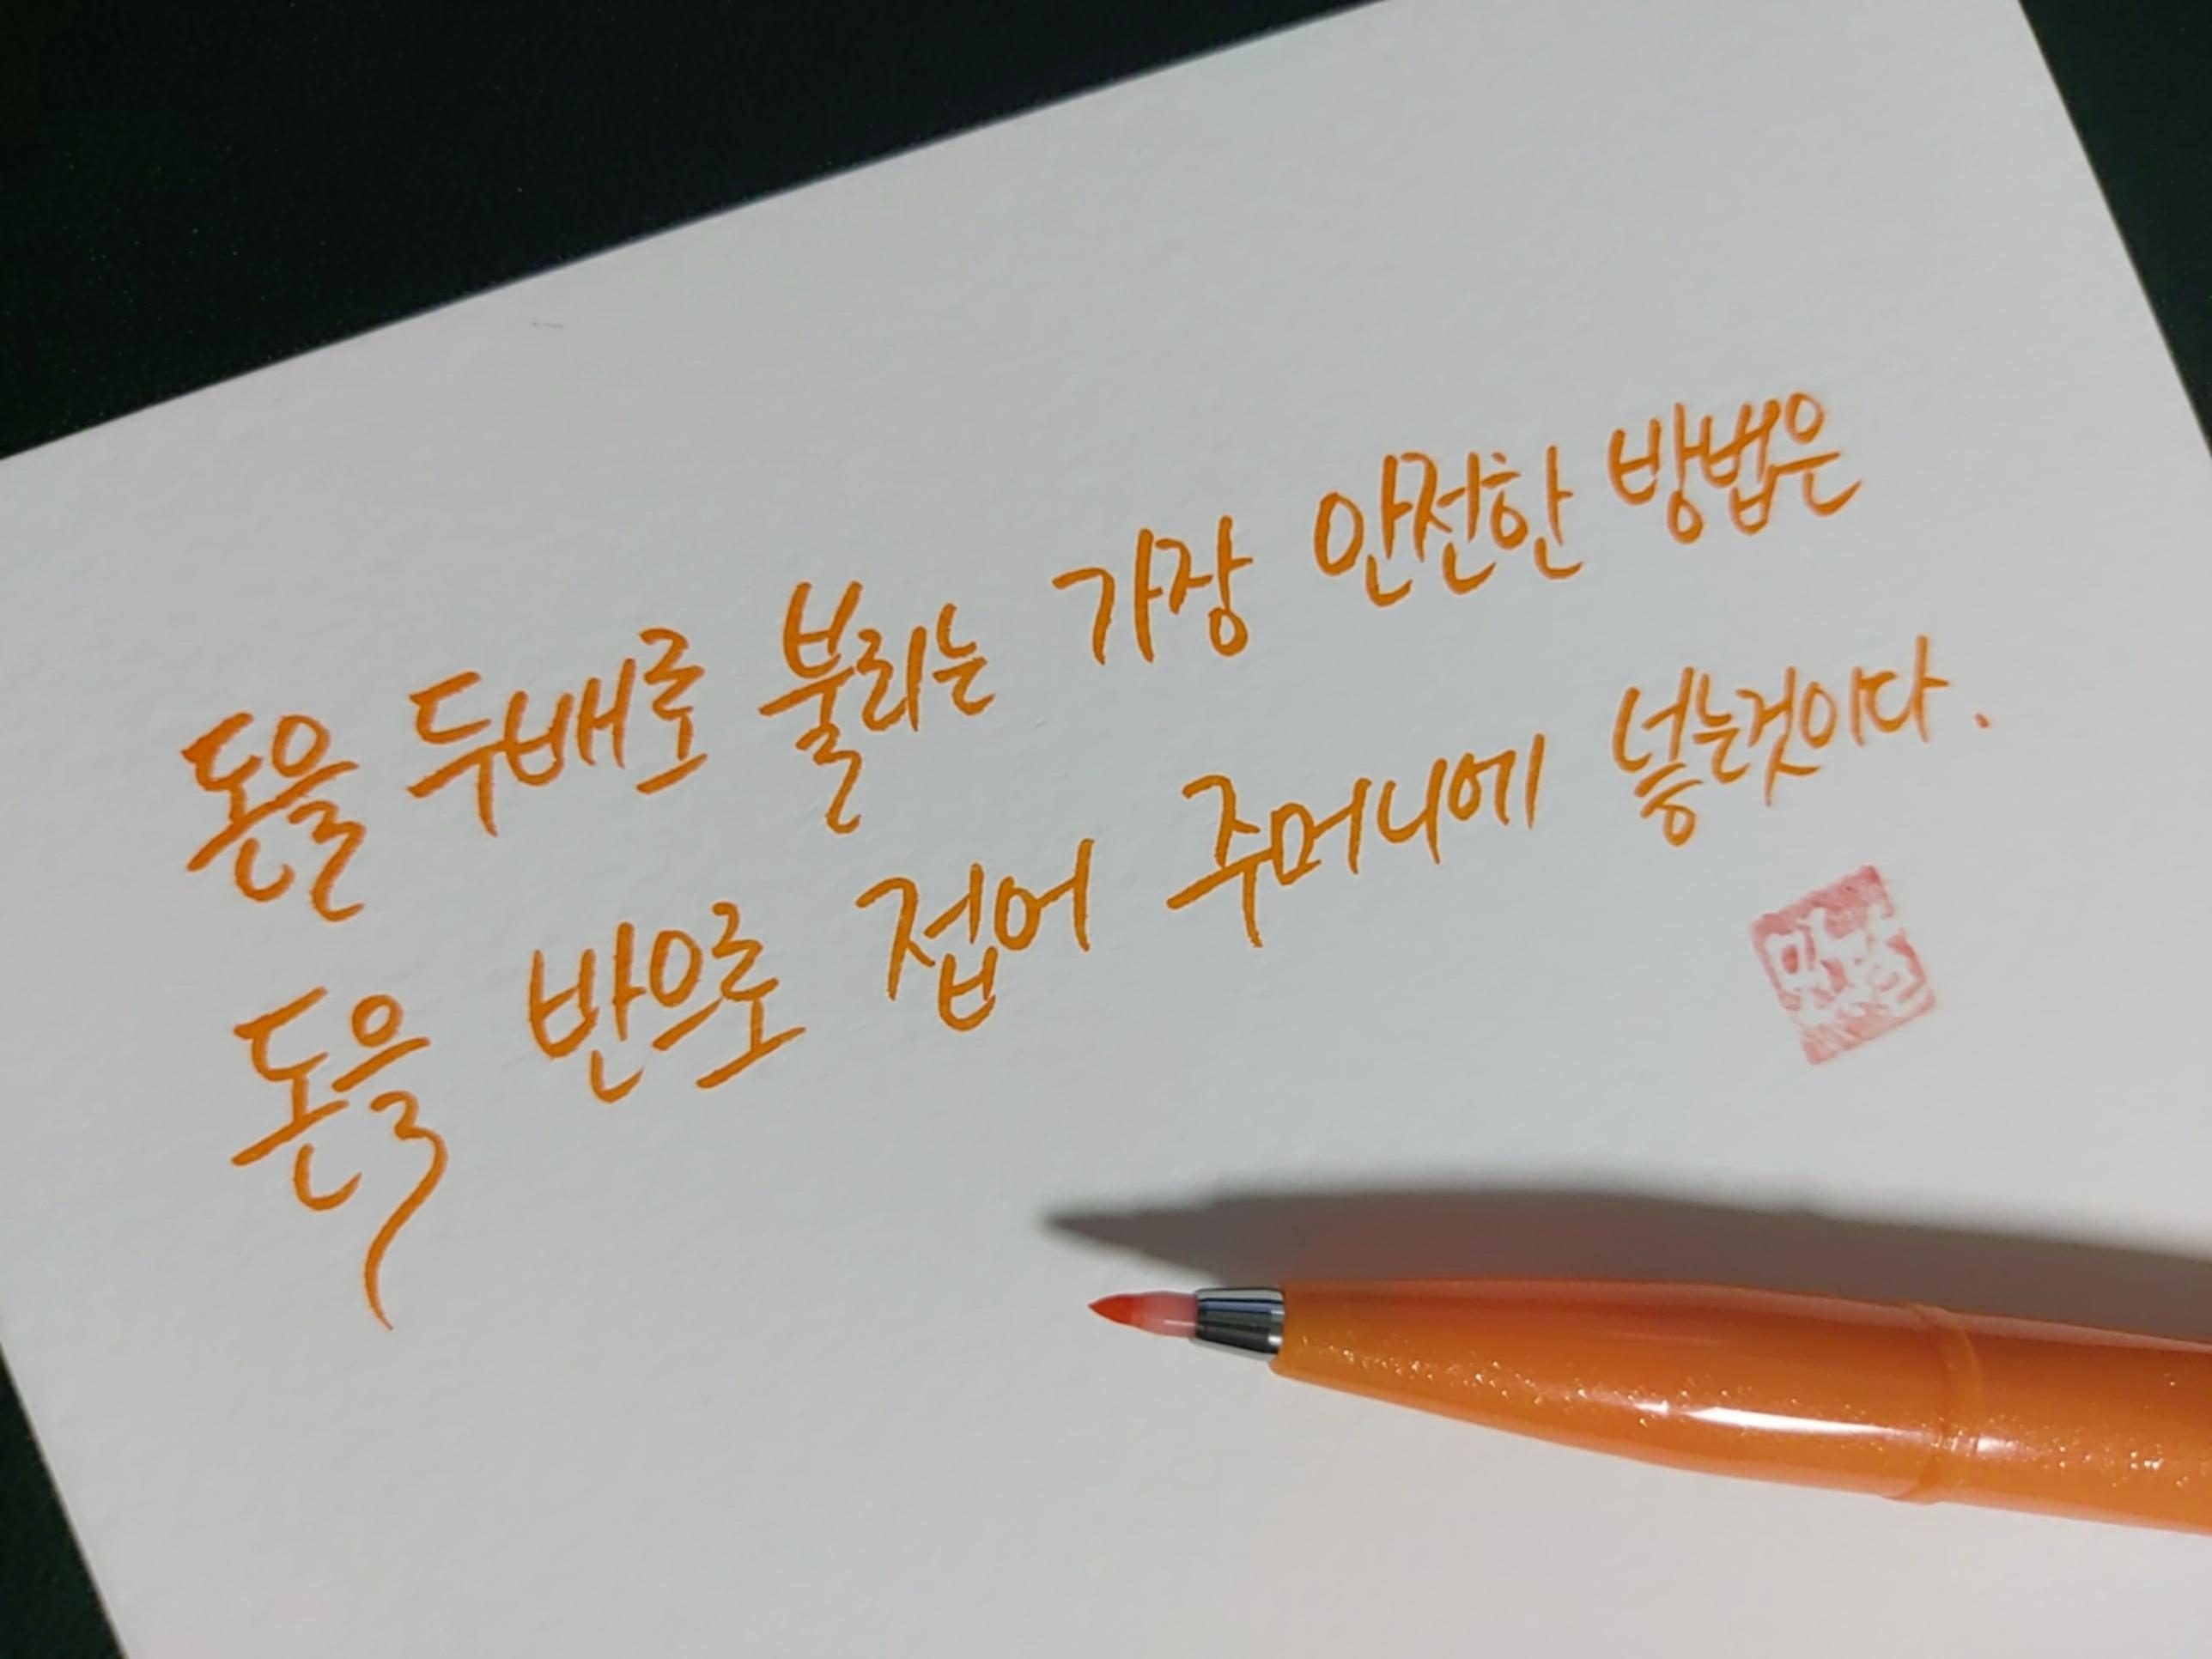 돈을 두배로 불리는 가장 안전한 방법은
돈을 반으로 접어 주머니에 넣는것이다.